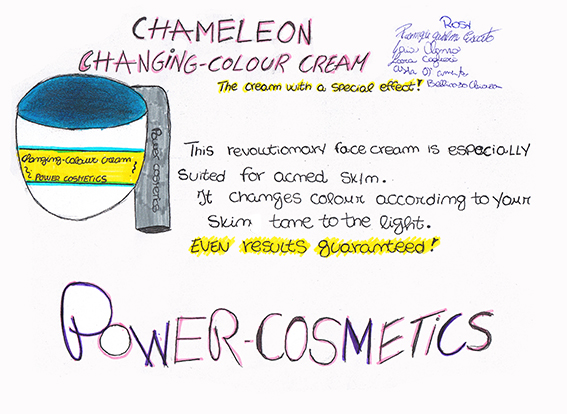 CHAMELEON
CHANGING-COLOUR CREAM
The cream with a special effect!
ROSY
Changing-colour cream
POWER COSMETICS
POWER COSMETICS
This revolutionary face cream is especially
suited for acned skin.
It changes colour according to your
skin tone to the light.
EVEN results guaranteed!
POWER-COSMETICS